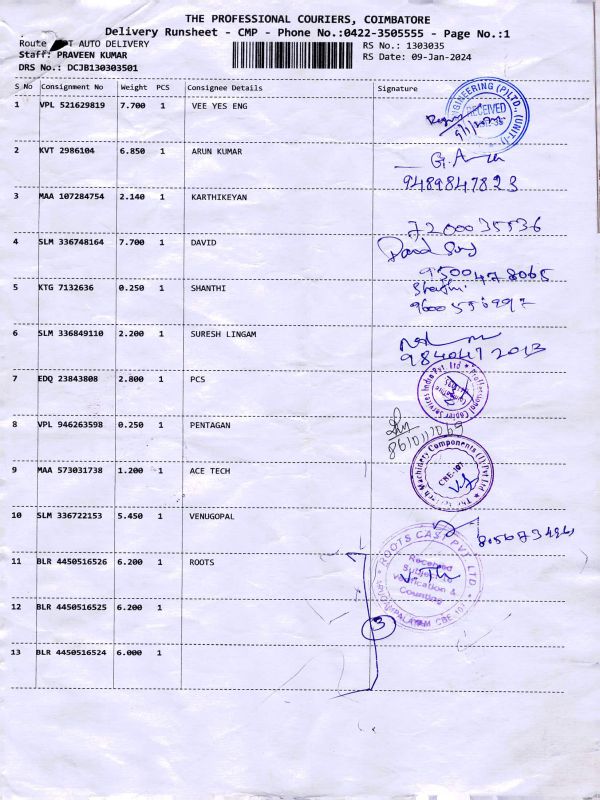 THE PROFESSIONAL COURIERS, COIMBATORE
Delivery Runsheet - CMP - Phone No.:0422-3505555 - Page No.:1
Route T AUTO DELIVERY
RS No.: 1303035
Staff: PRAVEEN KUMAR
RS Date: 09-Jan-2024
DRS No.: DCJB130303501
S No Consignment No Weight PCS Consignee Details Signature
1 VPL 521629819 7.700 1 VEE YES ENG
RECEIVED
2 KVT 2986104 6.850 1 ARUN KUMAR
9489847823
3 MAA 107284754 2.140 1 KARTHIKEYAN
7200035536
4 SLM 336748164 7.700 1 DAVID
David
9500478065
5 KTG 7132636 0.250 1 SHANTHI
Shanthi
6 SLM 336849110 2.200 1 SURESH LINGAM
9840472013
7 EDQ 23843808 2.800 1 PCS
8 VPL 946263598 0.250 1 PENTAGAN
8610112069
9 MAA 573031738 1.200 1 ACE TECH
Machinery Components (I) Pvt Ltd
CBE-107
10 SLM 336722153 5.450 1 VENUGOPAL
11 BLR 4450516526 6.200 1 ROOTS
ROOTS CAST PVT LTD
Received
Subject to
Verification &
Counting
12 BLR 4450516525 6.200 1
3
13 BLR 4450516524 6.000 1